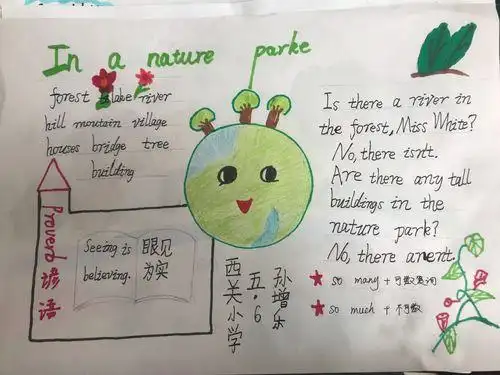 In a nature parke
forest lake river
hill moutain village
houses bridge tree
building
Proverb 谚语
Seeing is
believing.
眼见
为实
西关小学
五.6
孙增乐
Is there a river in
the forest, Miss White?
No, there isn't.
Are there any tall
buildings in the
nature park?
No, there aren't.
★ so many + 可数复词
★ so much + 不可数